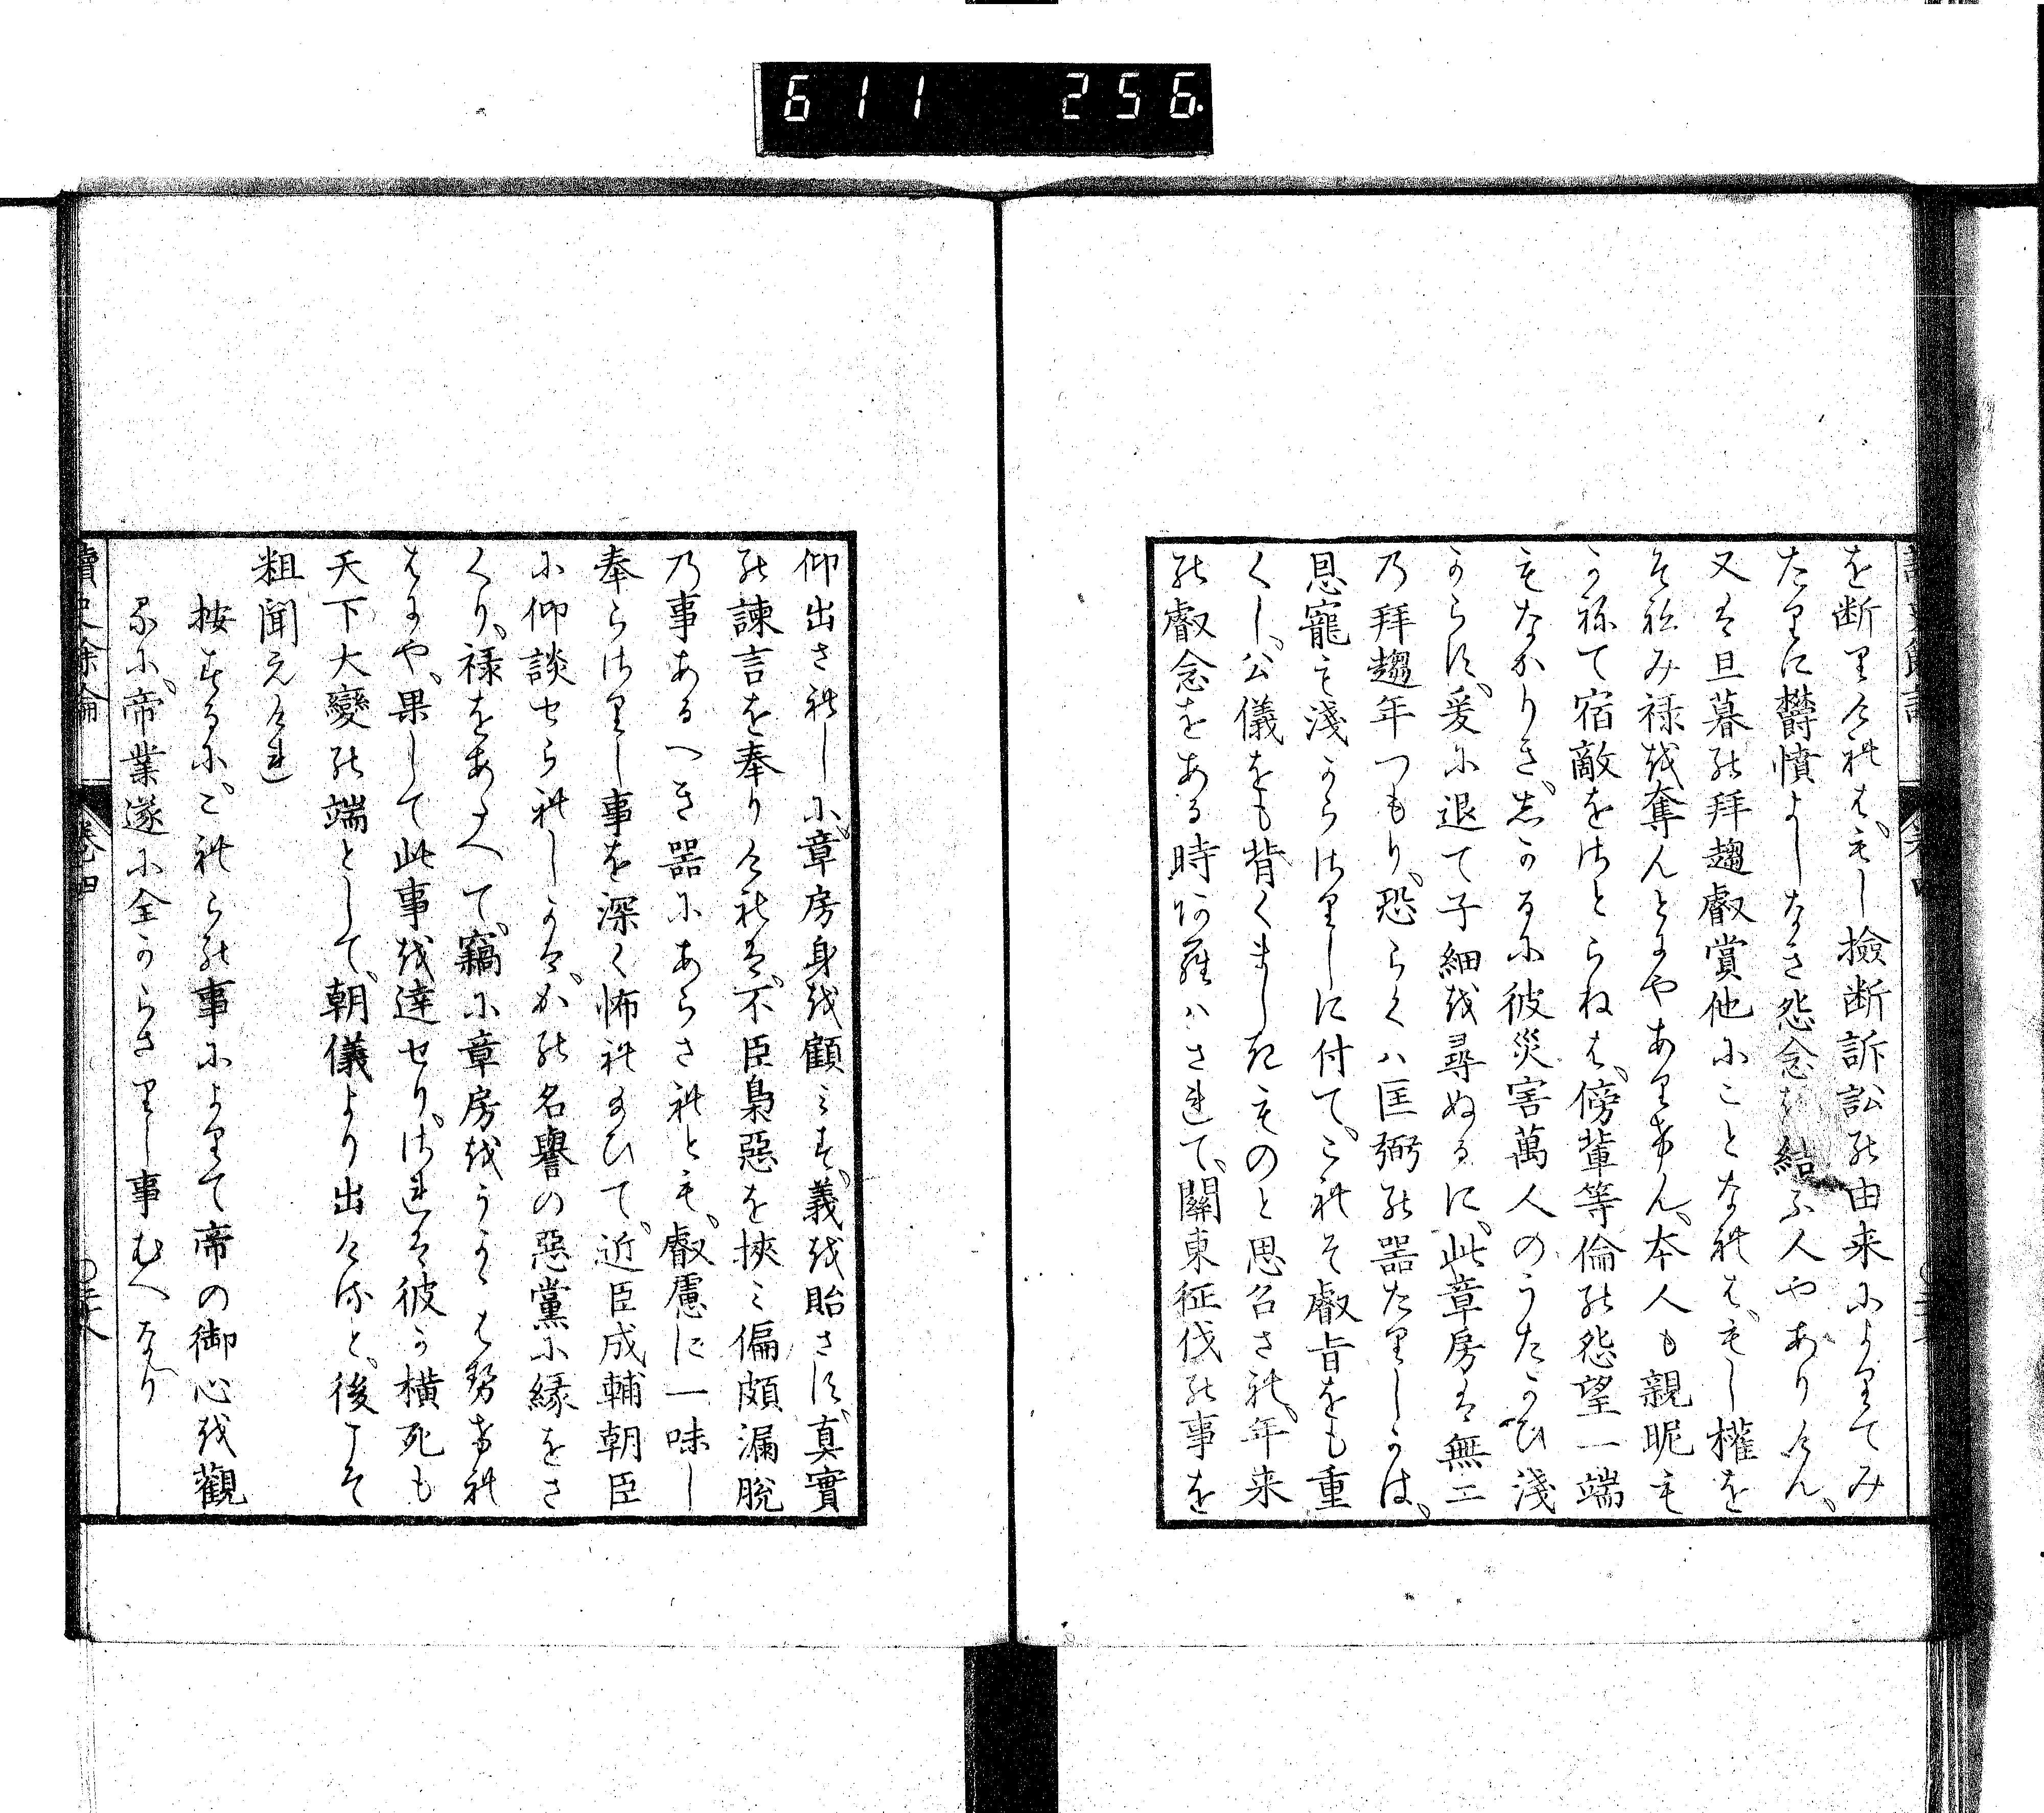 611 256
を断りけれは、もし撿断訴訟の由来によりてみ
たりに欝憤よしなき怨念を結ふ人やありけん、
又は旦暮の拜趨叡賞他にことなれは、もし權を
そねみ禄を奪んとにやありけん、本人も親昵も
かねて宿敵をさとらねは、傍輩等倫の怨望一端
もなかりき、しかるに彼災害萬人のうたかひ淺
からす、爰に退て子細を尋ぬるに、此章房は無二
の拜趨年つもり、恐らくハ匡弼の器たりしかは、
恩寵も淺からさりしに付て、これそ叡旨をも重
くし、公儀をも背くましきものと思召され、年来
の叡念をある時アラハされて、關東征伐の事を
仰出されしに、章房身を顧みす、義を貽さす、真實
の諫言を奉りけれは、不臣梟惡を挾み偏頗漏脫
の事あるへき器にあらされとも、叡慮に一味し
奉らさりし事を深く怖れ給ひて、近臣成輔朝臣
に仰談せられしかは、かの名譽の惡黨に縁をさ
くり、禄をあたへて、竊に章房をうかゝはせられ
はにや、果して此事を達せり、されは彼か横死も
天下大變の端として、朝儀より出けると、後にそ
粗聞えける
按するに、これらの事によりて帝の御心を觀
るに、帝業遂に全からさりし事むへなり
讀史餘論
卷四